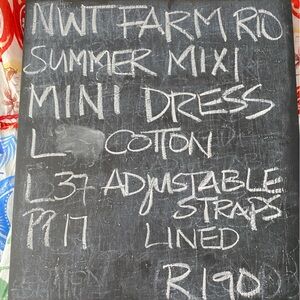 NWT FARM RIO
SUMMER MIXI
MINI DRESS
L COTTON
L37 ADJUSTABLE
STRAPS
PP17 LINED
R190